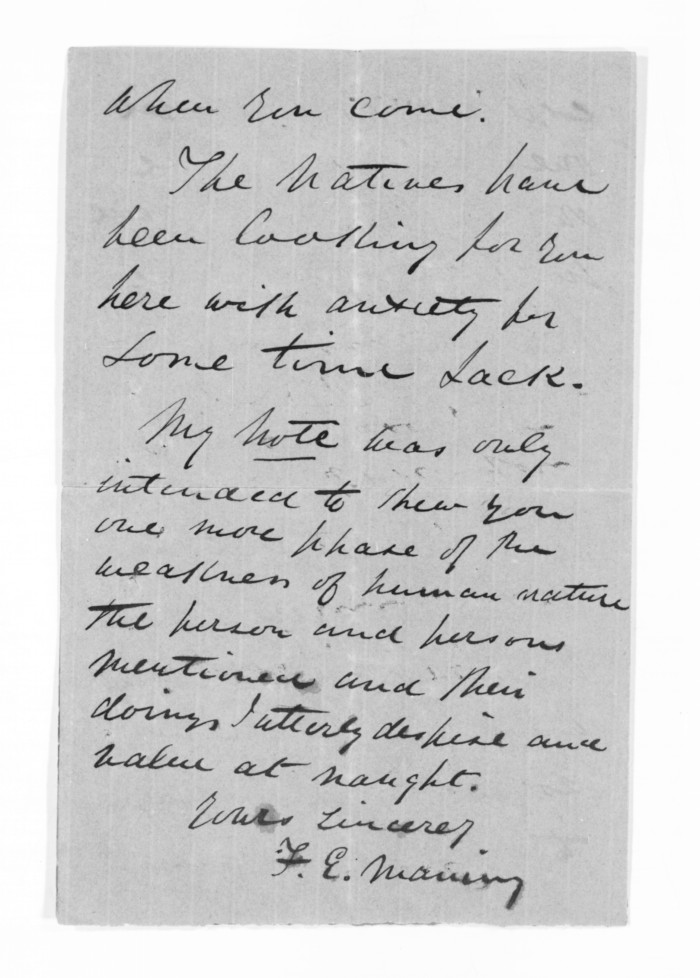 When you come.
The Natives have
been Looking for you
here with anxiety for
some time back.
My Note was only
intended to shew you
one more phase of the
weakness of human nature
the person and persons
mentioned and their
doings I utterly despise and
value at naught.
Yours sincerely
F. E. Maning